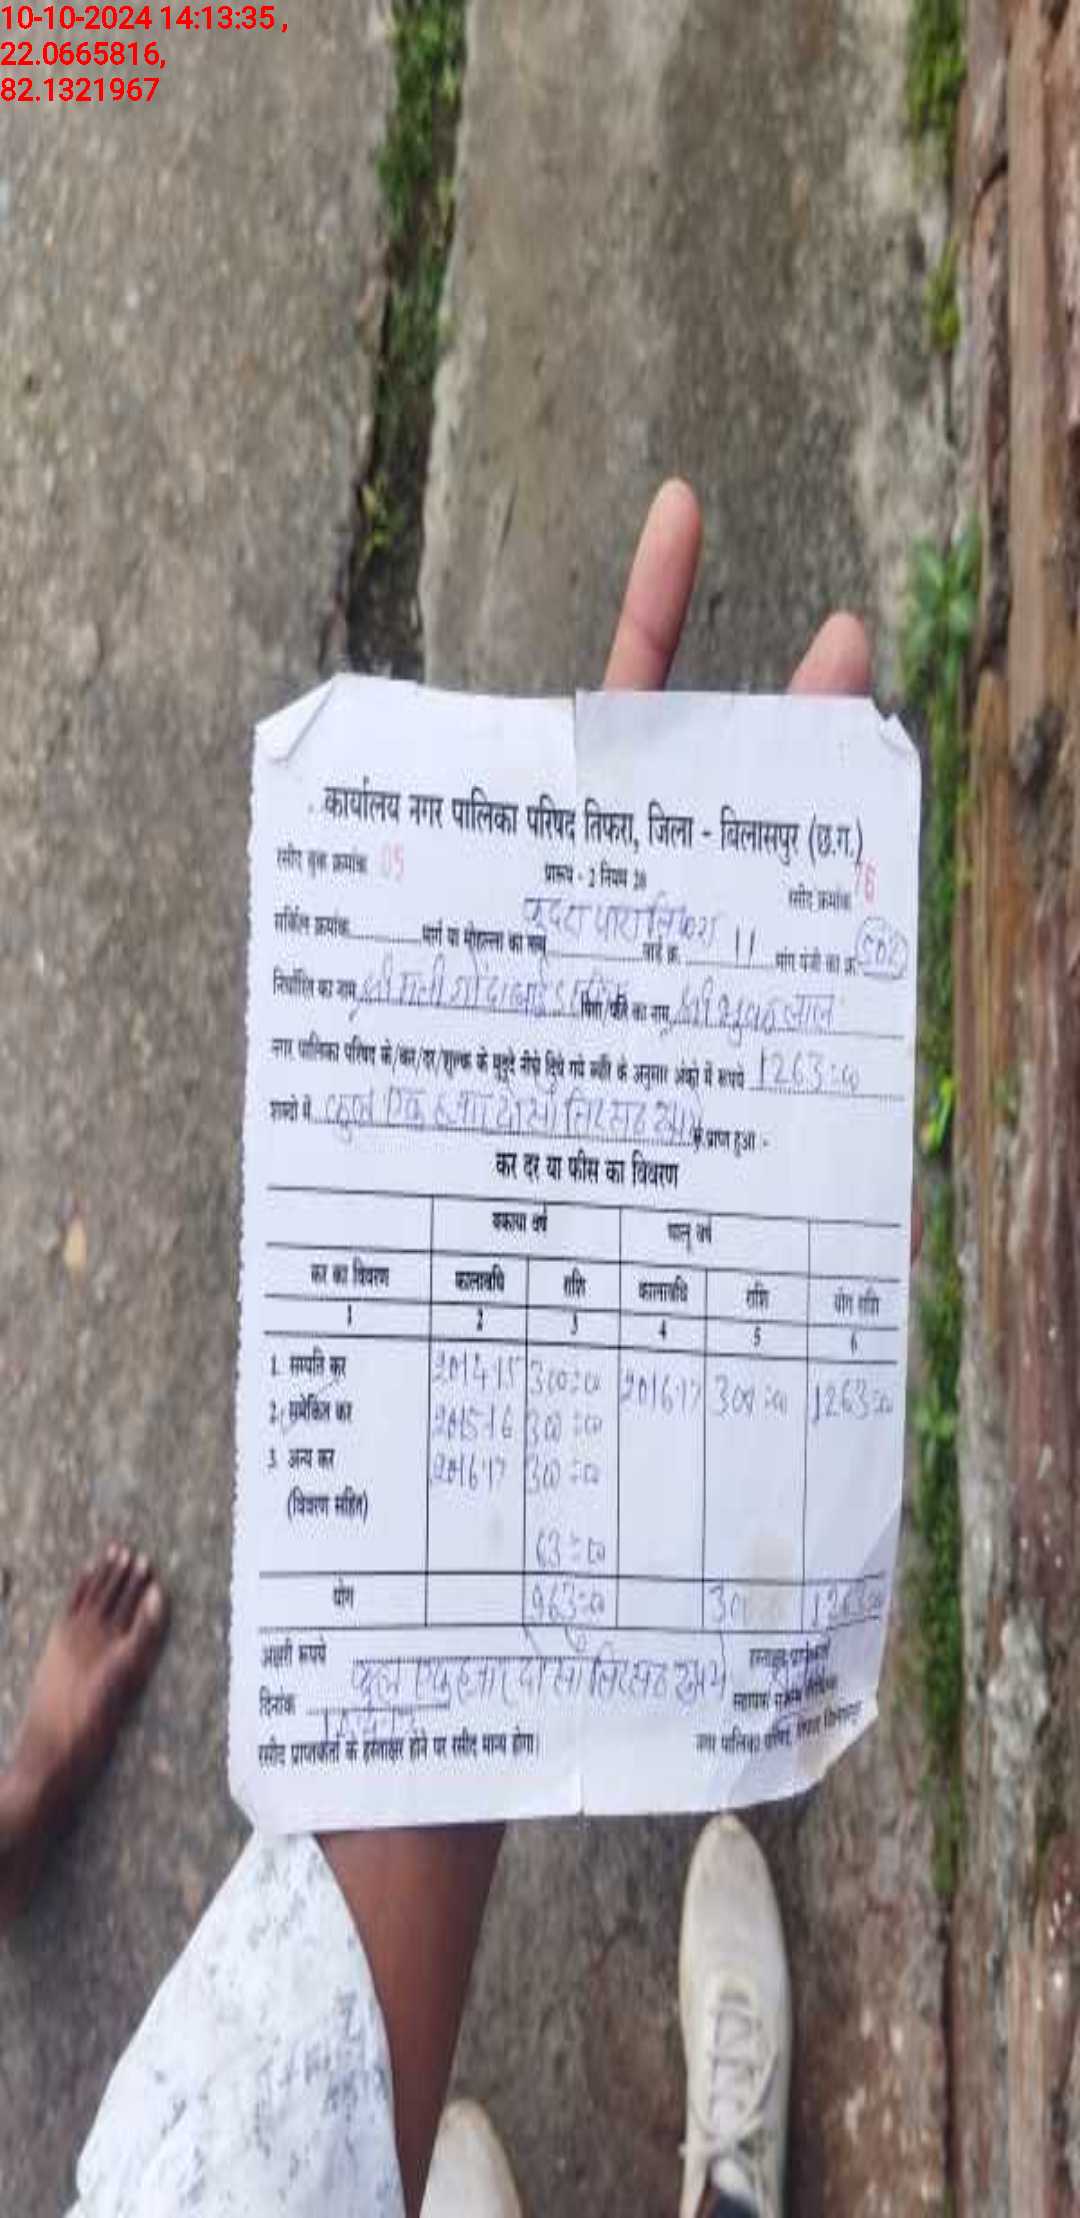 10-10-2024 14:13:35 ,
22.0665816,
82.1321967
कार्यालय नगर पालिका परिषद तिफरा, जिला - बिलासपुर (छ.ग.)
रसीद बुक क्रमांक 05 प्रारूप - 2 नियम 20 रसीद क्रमांक 76
सर्किल क्रमांक मार्ग या मोहल्ला का नाम वार्ड क्र. 11 मांग पंजी का क्र.
निर्धारित का नाम श्रीमती पिता/पति का नाम श्री
नगर पालिका परिषद के/कर/दर/शुल्क के मुद्दे नीचे दिये गये ब्यौरे के अनुसार अंकों में रूपये 1263=00
शब्दो में कुल एक हजार दो सौ तिरसठ रूपये प्राप्त हुआ :-
कर दर या फीस का विवरण
बकाया वर्ष चालू वर्ष
कर का विवरण कालावधि राशि कालावधि राशि योग राशि
1 2 3 4 5 6
1. सम्पति कर 2014-15 300=00 2016-17 300=00 1263=00
2. समेकित कर 2015-16 300=00
3. अन्य कर 2016-17 300=00
(विवरण सहित)
63=00
योग 963=00 300 1263=00
अक्षरी रूपये कुल एक हजार दो सौ तिरसठ रूपये
दिनांक
रसीद प्राप्तकर्ता के हस्ताक्षर होने पर रसीद मान्य होगा। नगर पालिका परिषद,